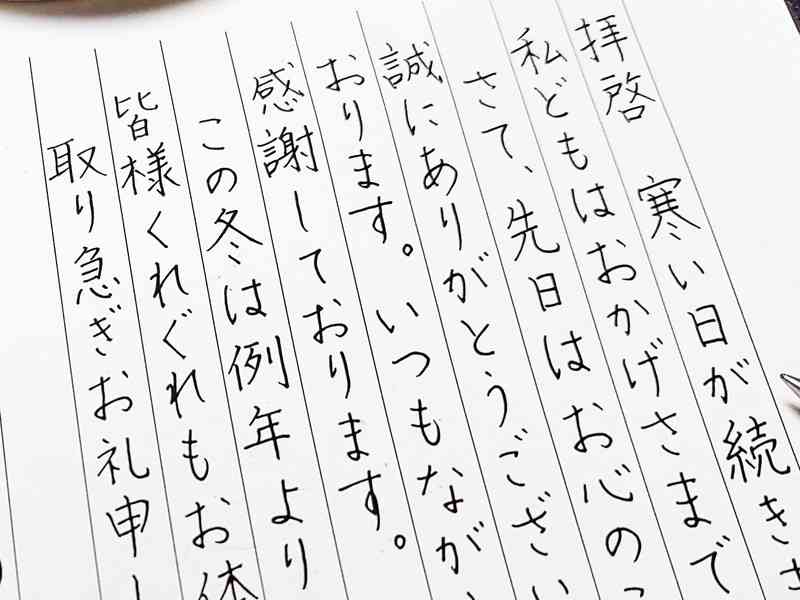 拝啓　寒い日が続き
私どもはおかげさまで
さて、先日はお心の
誠にありがとうござい
おります。いつもなが
感謝しております。
この冬は例年より
皆様くれぐれもお体
取り急ぎお礼申し